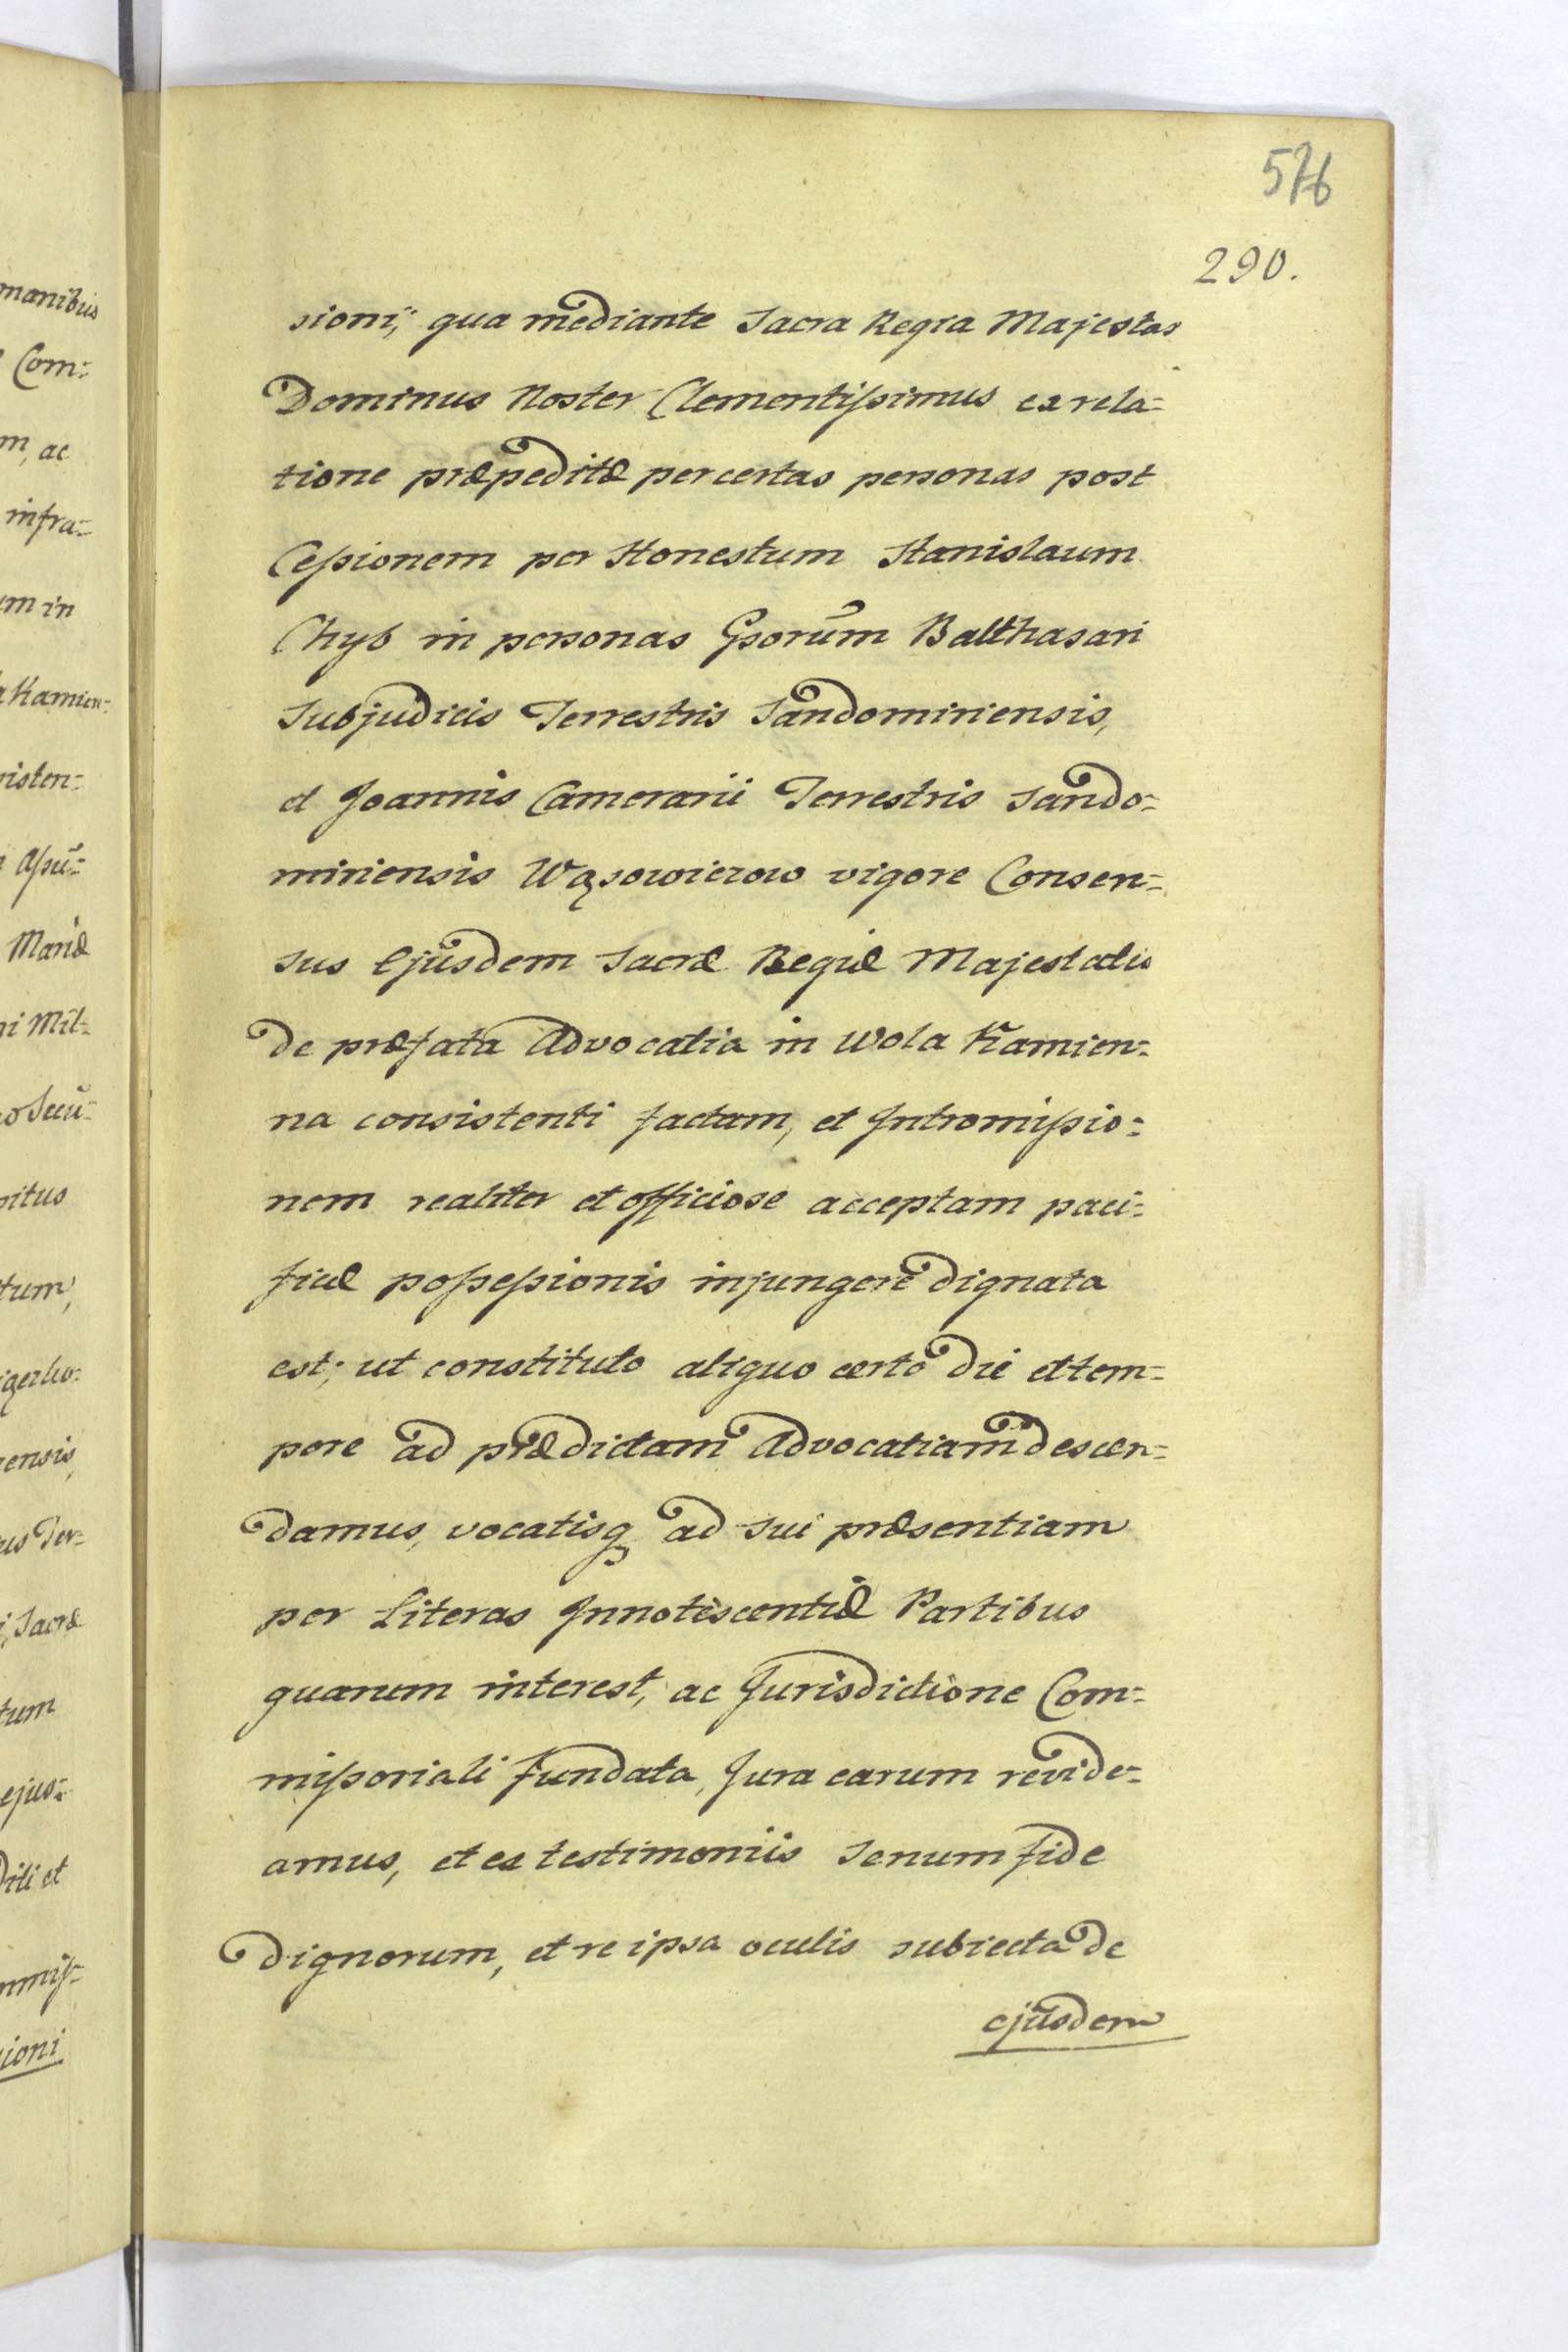 576
290.
sioni, qua mediante Sacra Regia Majestas
Dominus Noster Clementissimus ex rela=
tione præpeditæ per certas personas post
Cessionem per Honestum Stanislaum
Chyb in personas Gsorum Balthasari
Subjudicis Terrestris Sandomiriensis,
et Joannis Camerarii Terrestris Sando=
miriensis Wąsowiczow vigore Consen=
sus Ejusdem Sacræ Regiæ Majestatis
de præfata Advocatia in Wola Kamien=
na consistenti factam, et Intromissio=
nem realiter et officiose acceptam paci=
ficæ possessionis injungere dignata
est; ut constituto aliquo certo die et tem=
pore ad prædictam Advocatiam descen=
damus, vocatisq ad sui præsentiam
per Literas Innotescentiæ Partibus
quarum interest, ac Jurisdictione Com=
missoriali fundata, Jura earum revide=
amus, et ex testimoniis Senum fide
dignorum, et re ipsa oculis subiecta de
ejusdem
manibus
Com=
m, ac
infra=
um in
Kamien=
sisten=
Assu=
Mariæ
ni Mil=
o Secu=
pitus
tum,
ensis,
us Ter=
i, Sacræ
tum
ejus=
diti et
mmis=
sioni